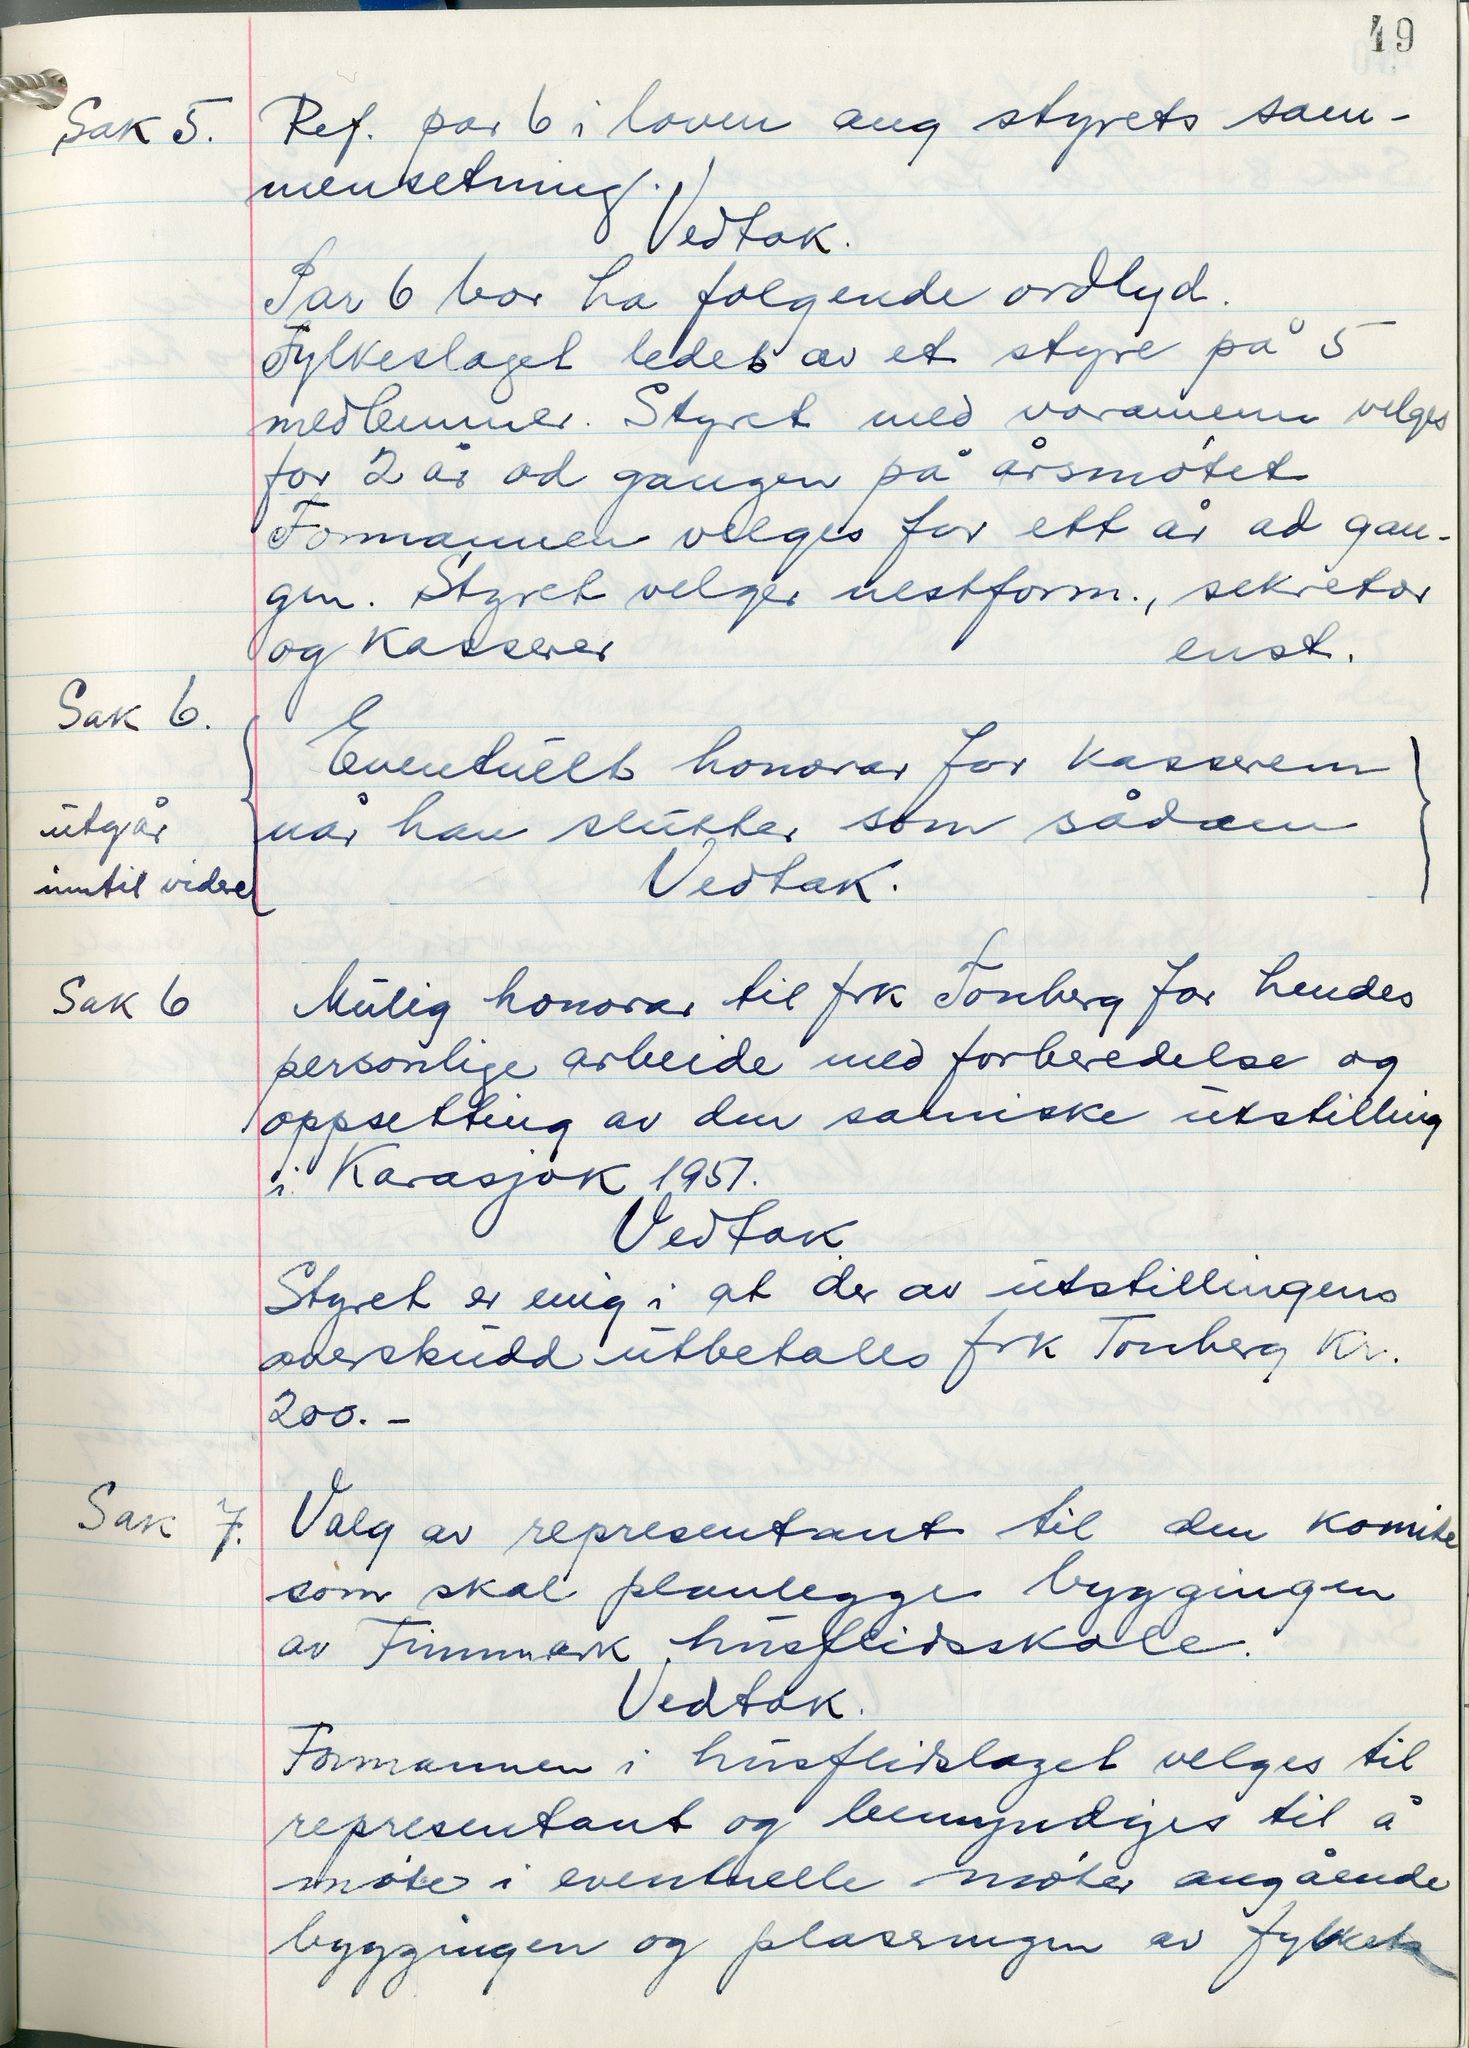 49
Sak 5. Ref. par 6 i loven ang styrets sam-
mensetning.
Vedtak.
Par 6 bør ha følgende ordlyd.
Fylkeslaget ledes av et styre på 5
medlemmer. Styret med varamenn velges
for 2 år ad gangen på årsmötet
Formannen velges for ett år ad gan-
gen. Styret velger nestform., sekretær
og kasserer enst.
Sak 6.
Eventuelt honorar for kasseren
utgår når han slutter som sådan
inntil videre Vedtak.
Sak 6 Mulig honorar til frk Tonberg for hendes
personlige arbeide med forberedelse og
oppsetting av den samiske utstilling
i Karasjok 1957.
Vedtak
Styret er enig i at der av utstillingens
overskudd utbetales frk Tonberg Kr.
200.-
Sak 7. Valg av representant til den komite
som skal planlegge byggingen
av Finnmark husflidsskole.
Vedtak.
Formannen i husflidslaget velges til
representant og bemyndiges til å
möte i eventuelle möter angående
byggingen og plaseringen av fylkets